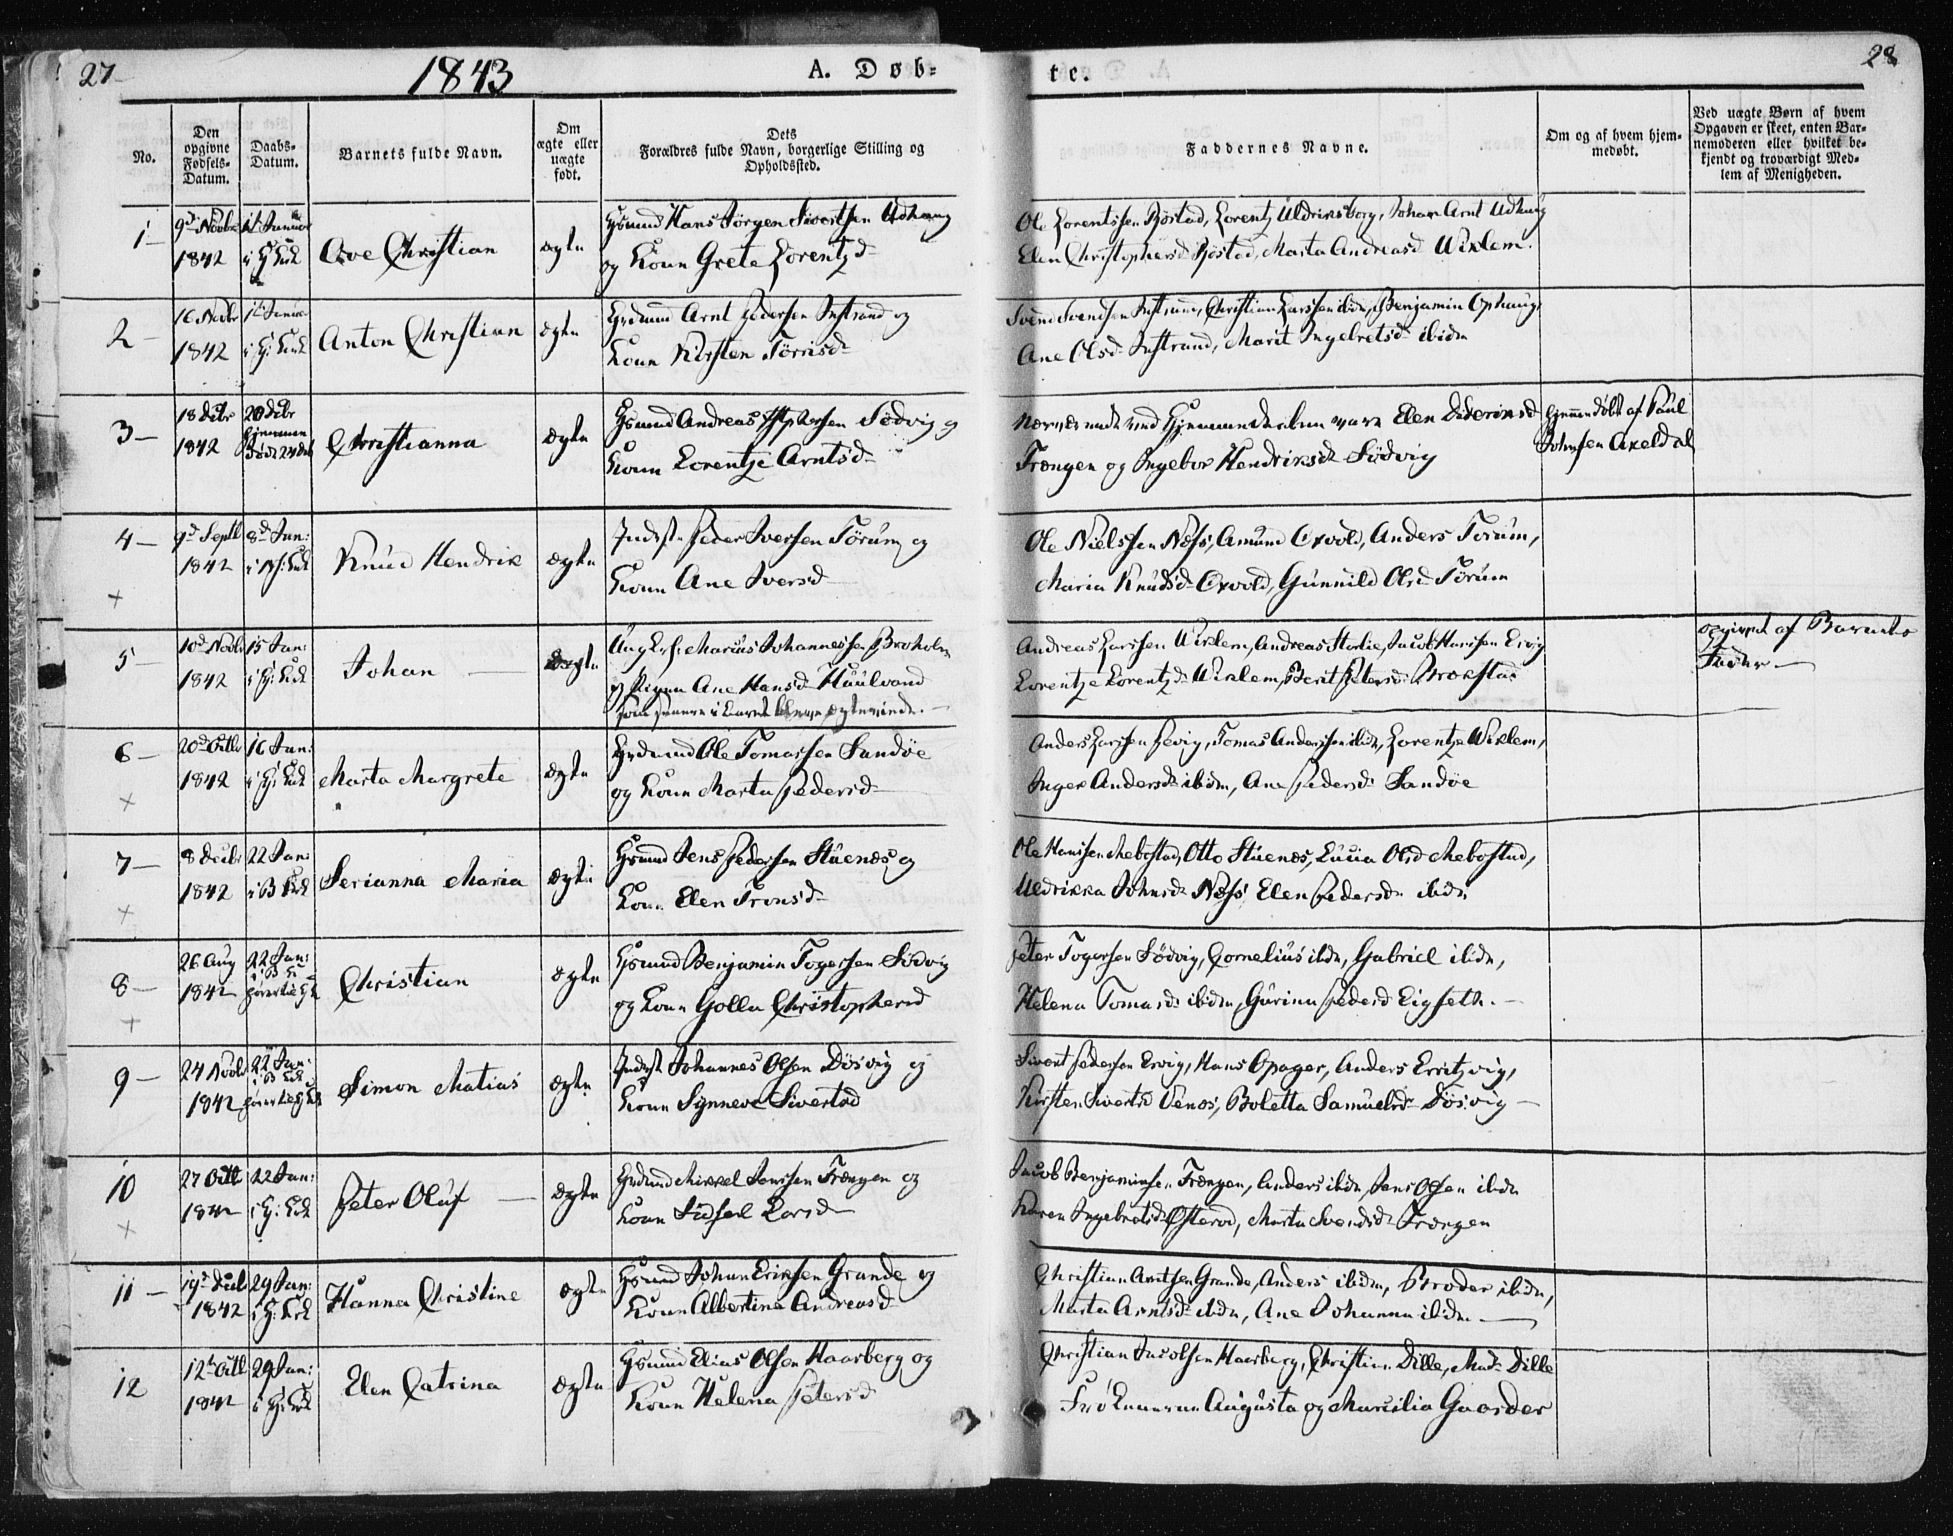 27
1843
A. Døb-
te.
28
No.
Den opgivne Fødsels-Datum.
Daabs-Datum.
Barnets fulde Navn.
Om ægte eller uægte født.
Dets
Forældres fulde Navn, borgerlige Stilling og Opholdssted.
Faddernes Navne.
Om og af hvem hjemmedøbt.
Ved uægte Børn af hvem Opgaven er skeet, enten Barnemoderen eller hvilket bekjendt og troværdigt Medlem af Menigheden.
1 —
9d Novbr 1842
Ove Christian
ægte
Hans Jörgen Sivertsen Udhaug
og Kone Grete Lorentzd
Ole Lorentssen Röstad, Lorentz Uldriksborg, Johan Arnt Udhaug
Elen Christophersd Röstad, Marta Andreasd Wiklem.
2 —
16 Novbr 1842
Anton Christian
ægte
Arnt Pedersen Instrand og
Kone Kirsten Törrisd
Svend Svendsen Instrand, Christian Larssen ibidm, Benjamin Ophaug
Ane Olsd Instrand, Marit Ingebretsd ibidm
3 —
18 Decbr 1842
20 Decbr hjemme
Christianna
ægte
Gsmd Andreas Södvig og
Kone Lorentze Arntsd
Elen Dideriksd
Trængen og Ingebor Hendriksd Södvig
hjemmedöbt af Paul
Johnsen Axeldal
4 —
9d Septb 1842
8d Jan:
Knud Hendrik
ægte
Inderst Peder Iversen Törum og
Kone Ane Iversd
Ole Nielssen Næss, Amund Oxvold, Anders Torum,
Maria Knudsd Oxvold, Gunnild Olsd Törum
5 —
10d Novbr 1842
15 Jan:
Johan —
ægte
Ung K: Marius Johannessen Broholm
og Pigen Ane Hansd Huulvand
Andreas Larssen Wiklem, Andreas Storlie, Jacob Hanssen Ervig
Lorentze Lorentzd Wiklem, Berit Petersd Brækstad
opgivet af Barnets
Fader —
6 —
20d Octbr 1842
16 Jan:
Marta Margrete
ægte
Ole Tomassen Sandöe
og Kone Marta Pedersd
Anders Larssen Sevig, Tomas Anderssen ibidm, Lorentze Wiklem,
Inger Andersd ibidm, Ane Pedersd Sandöe
7 —
8 Decbr 1842
22 Jan:
Serianna Maria
ægte
Gsmd Jens Pedersen Stuenæs og
Kone Elen Tronsd
Ole Hanssen Mebostad, Otto Stuenæs, Lucia Olsd Mebostad,
Uldrikka Johnsd Næss, Elen Pedersd ibidm
8 —
26 Aug 1842
22 Jan:
Christian
ægte
Gsmd Benjamin Togersen Södvig
og Kone Golla Christophersd
Peter Togersen Södvig, Cornelius ibidm, Gabriel ibidm,
Helena Tomasd ibidm, Gurina Pedersd Eigseth. —
9 —
24 Novbr 1842
22 Jan:
Simon Matias
ægte
Inderst Johannes Olsen Dösvig og
Kone Synneve Sivertsd
Sivert Pedersen Ervig, Hans Opager, Anders Erritzvig,
Kirsten Sivertsd Venæs, Boletta Samuelsd Dösvig —
10
27 Octb 1842
22 Jan:
Peter Oluf —
ægte
Mikkel Jenssen Trængen og
Kone Sidsel Larsd
Jacob Benjaminsen Trængen, Anders ibidm, Jens Olsen ibidm
Karen Ingebretsd Osterod, Marta Svendsd Trængen
11 —
19d Decb 1842
29 Jan:
Hanna Christine
ægte
Gsmd Johan Eriksen Grande og
Kone Albertina Andreasd
Christian Arntsen Grande, Anders ibidm, Broder ibidm,
Marta Arntsd ibidm, Ane Johanna ibidm. —
12
12te Octb 1842
29 Jan:
Elen Catrina
ægte
Gsmd Elias Olsen Haarberg og
Kone Helena Petersd
Christian Jacobsen Haarberg, Christian Dille, Mad Dille
Augusta og Marcilia Gaarder